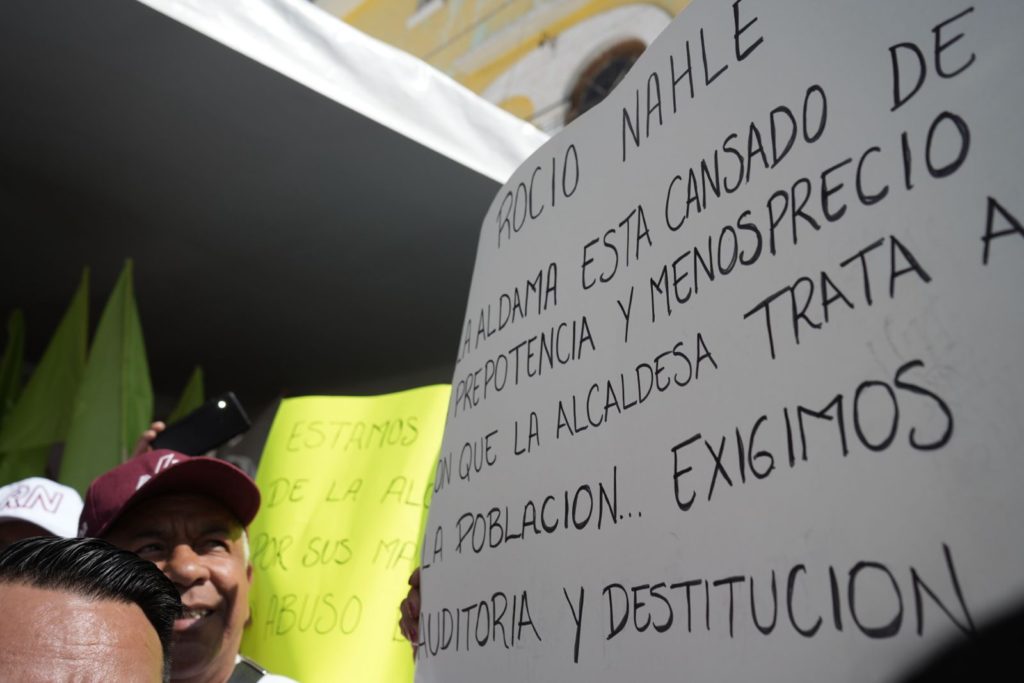 ROCIO NAHLE
LA ALDAMA ESTA CANSADO DE
PREPOTENCIA Y MENOSPRECIO
ON QUE LA ALCALDESA TRATA A
LA POBLACION... EXIGIMOS
AUDITORIA Y DESTITUCION
ESTAMOS
DE LA ALC
POR SUS MA
ABUSO
RN